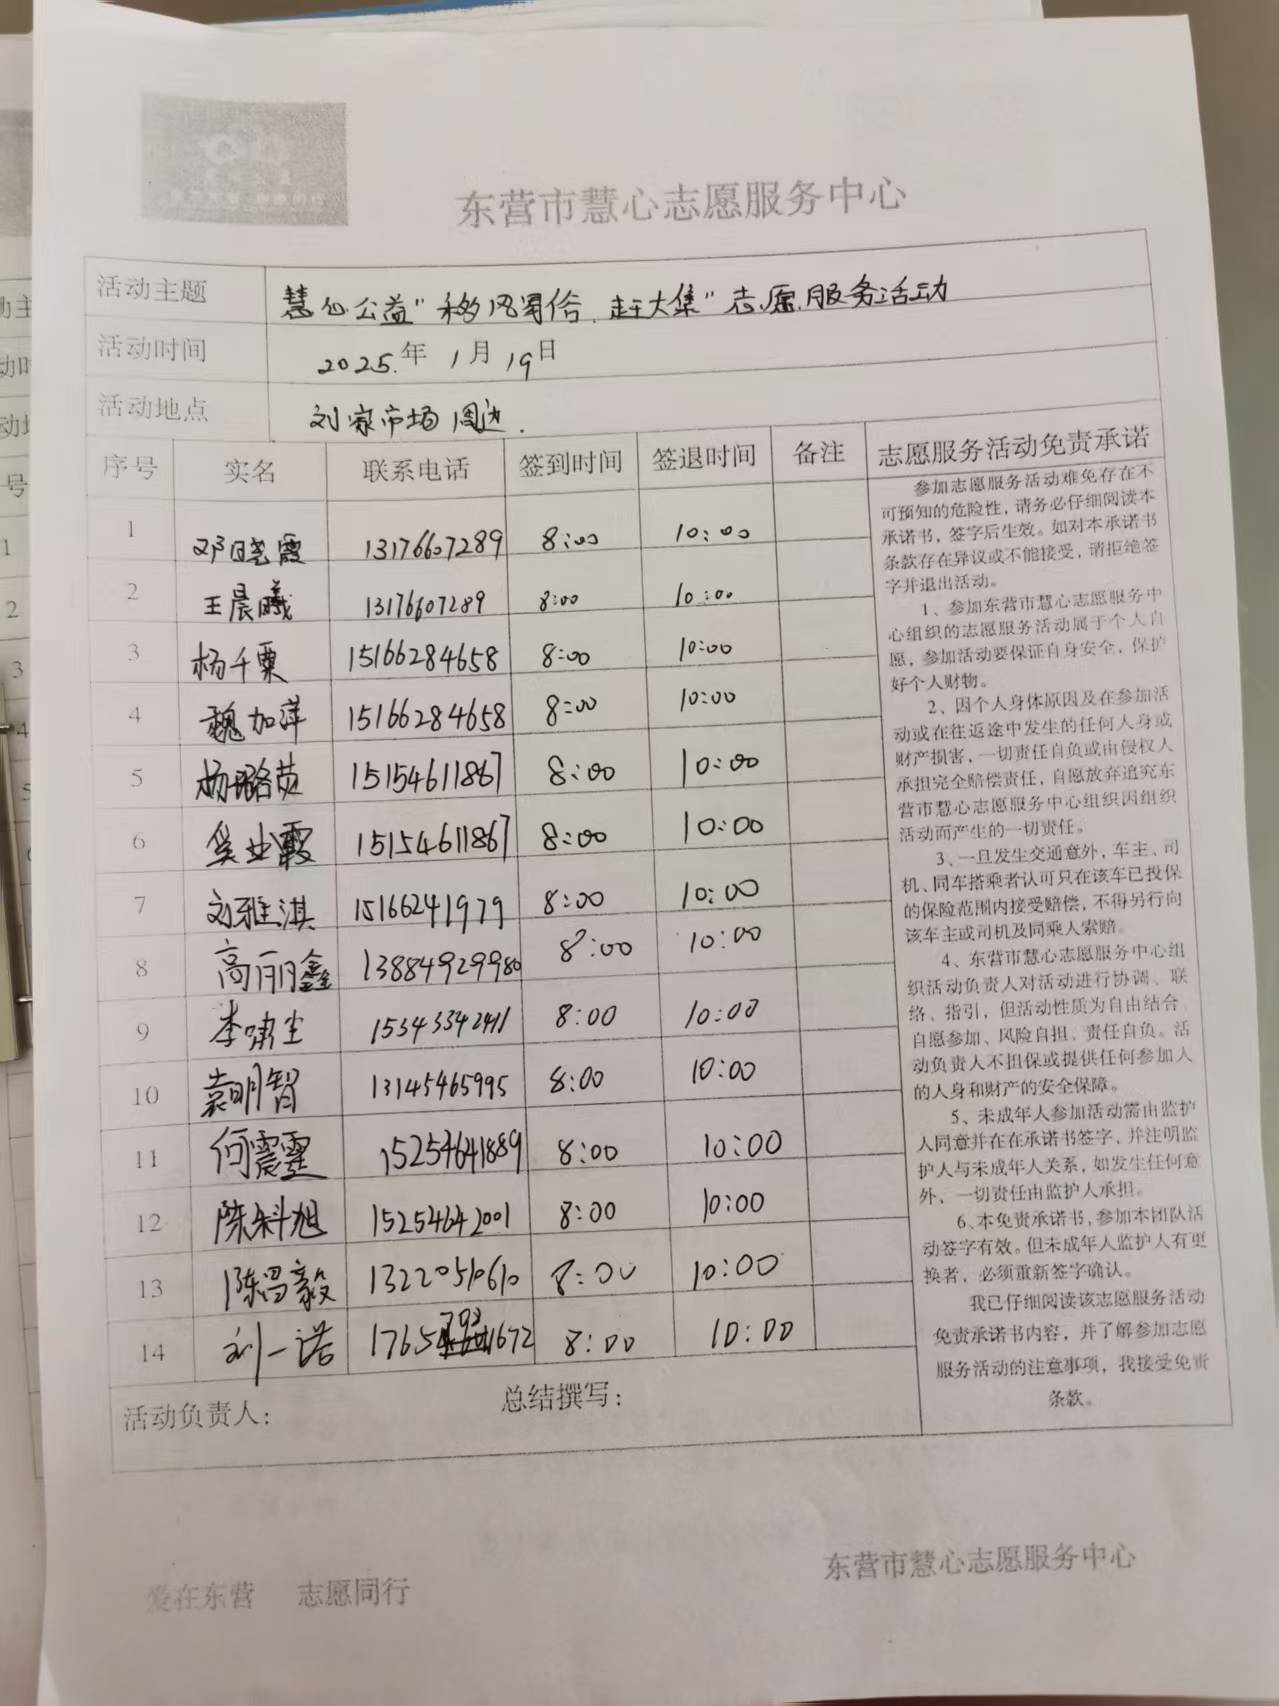 东营市慧心志愿服务中心
活动主题 慧心公益“移风易俗、赶大集”志愿服务活动
活动时间 2025.年1月19日
活动地点 刘家市场周边.
序号 实名 联系电话 签到时间 签退时间 备注 志愿服务活动免责承诺
1 邓晓霞 13176607289 8:00 10:00
2 王晨曦 13176607289 8:00 10:00
3 杨千粟 15166284658 8:00 10:00
4 魏加萍 15166284658 8:00 10:00
5 杨璐茹 15154611867 8:00 10:00
6 吴业霞 15154611867 8:00 10:00
7 刘雅淇 15166241979 8:00 10:00
8 高丽鑫 13884929980 8:00 10:00
9 李啸尘 15343342411 8:00 10:00
10 袁明智 13145465995 8:00 10:00
11 何震霆 15254641889 8:00 10:00
12 陈科旭 15254642001 8:00 10:00
13 陈昌毅 13220510610 8:00 10:00
14 刘一诺 1765 1672 8:00 10:00
活动负责人: 总结撰写:
参加志愿服务活动难免存在不
可预知的危险性，请务必仔细阅读本
承诺书，签字后生效。如对本承诺书
条款存在异议或不能接受，请拒绝签
字并退出活动。
1、参加东营市慧心志愿服务中
心组织的志愿服务活动属于个人自
愿，参加活动要保证自身安全，保护
好个人财物。
2、因个人身体原因及在参加活
动或在往返途中发生的任何人身或
财产损害，一切责任自负或由侵权人
承担完全赔偿责任，自愿放弃追究东
营市慧心志愿服务中心组织因组织
活动而产生的一切责任。
3、一旦发生交通意外，车主、司
机、同车搭乘者认可只在该车已投保
的保险范围内接受赔偿，不得另行向
该车主或司机及同乘人索赔。
4、东营市慧心志愿服务中心组
织活动负责人对活动进行协调、联
络、指引，但活动性质为自由结合、
自愿参加、风险自担、责任自负。活
动负责人不担保或提供任何参加人
的人身和财产的安全保障。
5、未成年人参加活动需由监护
人同意并在在承诺书签字，并注明监
护人与未成年人关系，如发生任何意
外，一切责任由监护人承担。
6、本免责承诺书，参加本团队活
动签字有效。但未成年人监护人有更
换者，必须重新签字确认。
我已仔细阅读该志愿服务活动
免责承诺书内容，并了解参加志愿
服务活动的注意事项，我接受免责
条款。
东营市慧心志愿服务中心
爱在东营 志愿同行